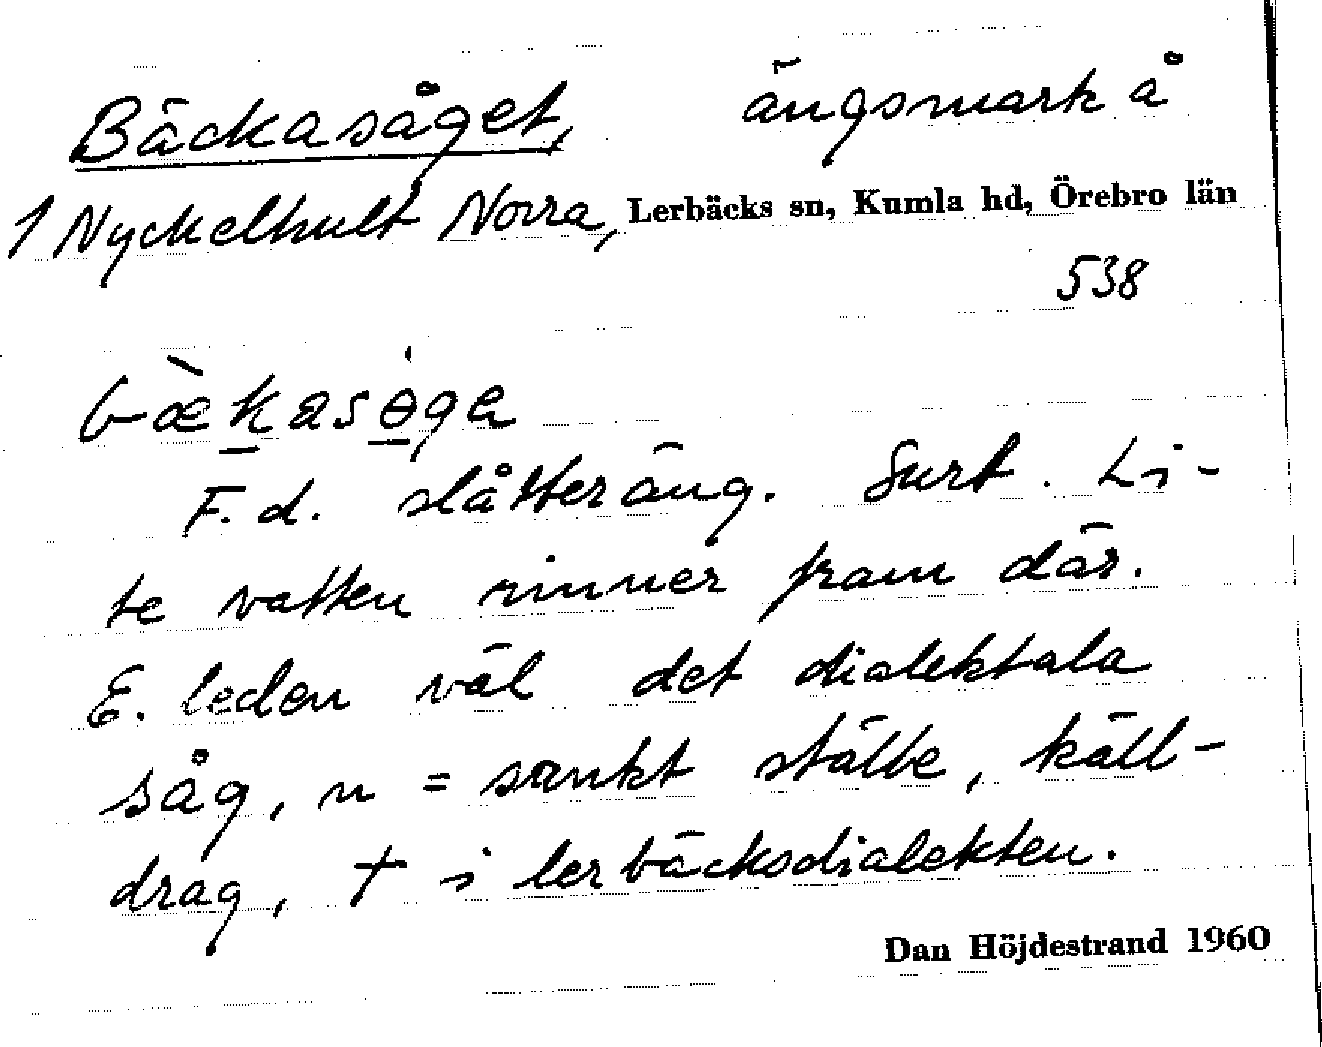 Bäckasåget, ängsmark å
1 Nyckelhult Norra, Lerbäcks sn, Kumla hd, Örebro län
538
bæ̀kasɵga
F.d. slåtteräng. Surt. Li-
te vatten rinner fram där.
E. leden väl det dialektala
såg, n = sankt ställe, käll-
drag, † i lerbäcksdialekten.
Dan Höjdestrand 1960